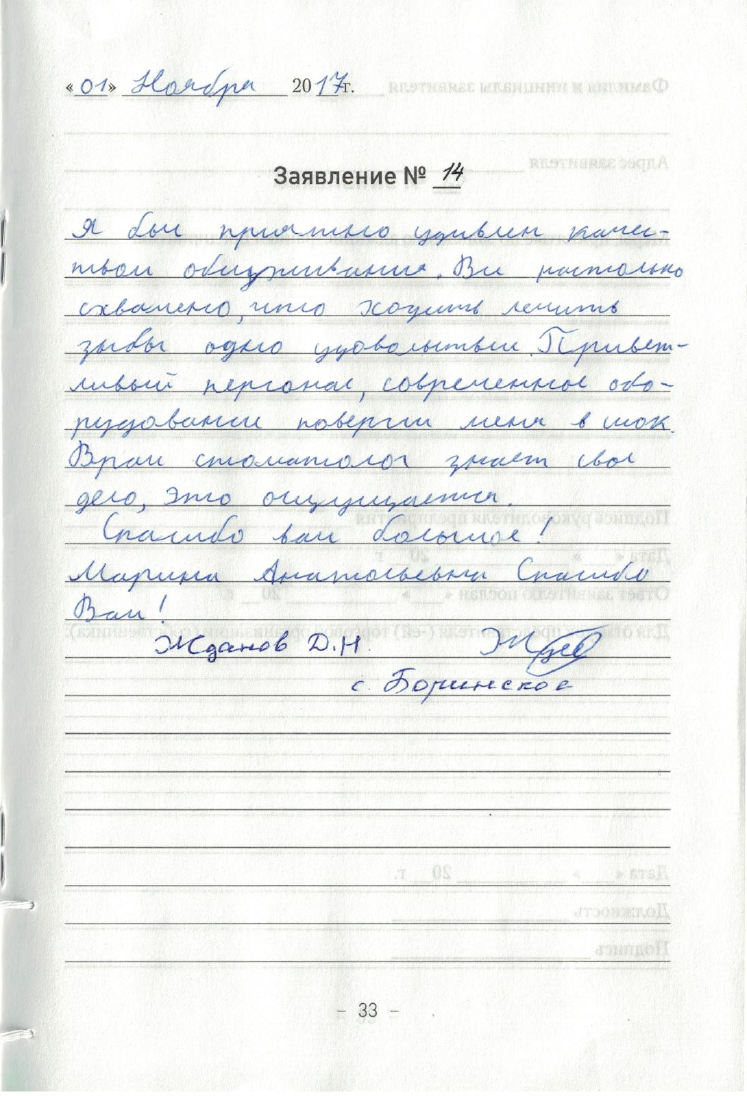 «01» Ноября 2017г.
Заявление № 14
Я был приятно удивлен качес-
твом обслуживания. Вы настолько
охвачено, что ходить лечить
зубы одно удовольствие. Привет-
ливый персонал, современное обо-
рудование повергли меня в шок.
Врач стоматолог знает свое
дело, это ощущается.
Спасибо вам большое!
Марина Анатольевна Спасибо
Вам!
Жданов Д.Н.
с. Боринское
- 33 -